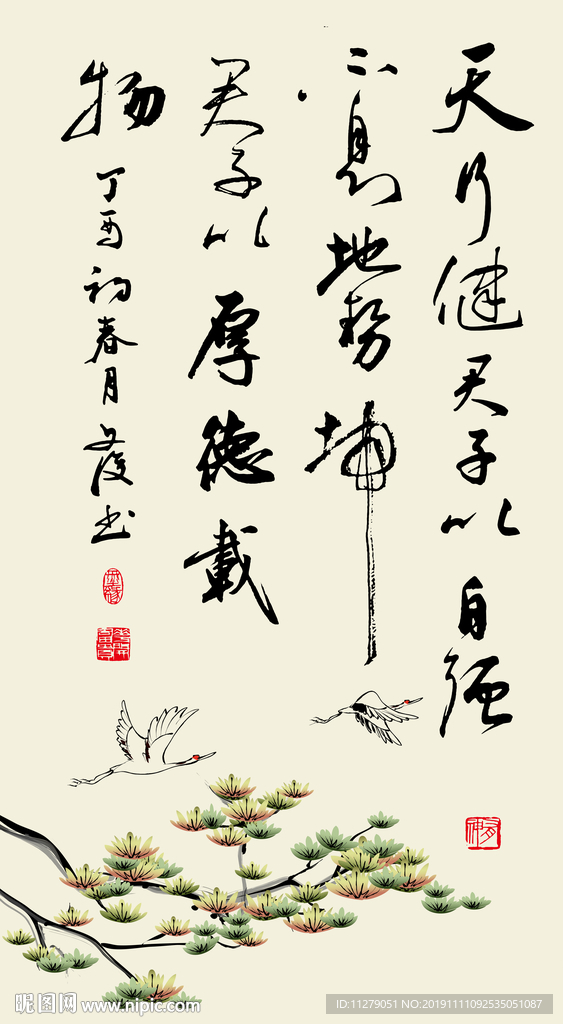 天行健君子以自强
不息地势坤
君子以厚德载
物
丁酉初春月文俊书
昵图网 www.nipic.com
ID:11279051 NO:20191111092535051087